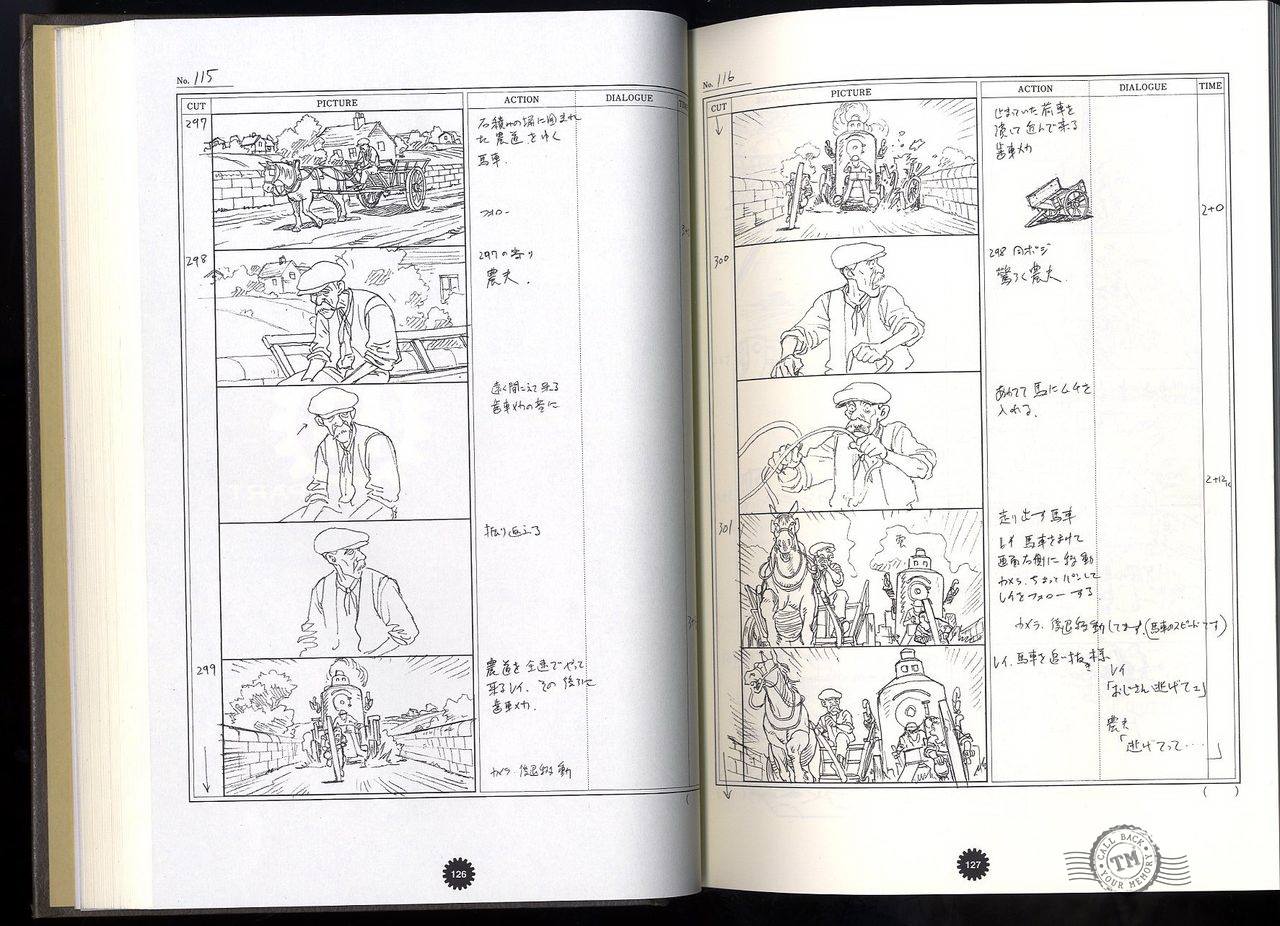 No. 115
CUT PICTURE ACTION DIALOGUE
297
石積みの塀に囲まれ
た農道をゆく
馬車.
フォロー
298
297の寄り
農夫.
遠く聞こえて来る
歯車メカの音に
振り返える
299
農道を全速でやって
来るレイ、その後ろに
歯車メカ.
カメラ、後退移動
126
No. 116
CUT PICTURE ACTION DIALOGUE TIME
止まっていた荷車を
潰して進んで来る
歯車メカ
2+0
300
298 同ポジ
驚ろく農夫.
あわてて馬にムチを
入れる.
2+12
301
走り出す馬車
レイ 馬車をよけて
画面右側に移動
カメラ、ちょっとパンして
レイをフォローする
カメラ、後退移動してます.(馬車のスピードです)
レイ、馬車を追い抜く様
レイ
「おじさん逃げてェ」
農夫
「逃げてって・・・・」
( )
127
CALL BACK
TM
YOUR MEMORY